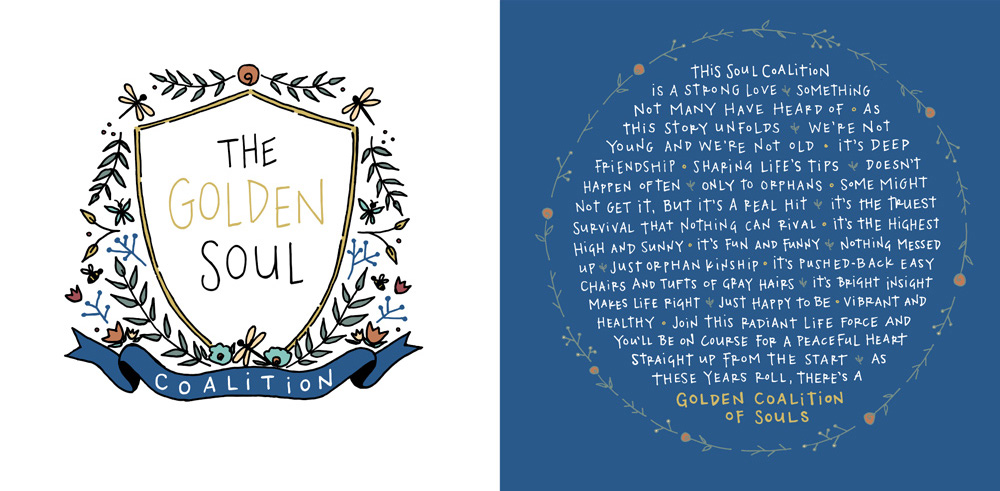 THE
GOLDEN
SOUL
COALITION
THIS SOUL COALITION
IS A STRONG LOVE SOMETHING
NOT MANY HAVE HEARD OF • AS
THIS STORY UNFOLDS WE'RE NOT
YOUNG AND WE'RE NOT OLD • IT'S DEEP
FRIENDSHIP • SHARING LIFE'S TIPS DOESN'T
HAPPEN OFTEN ONLY TO ORPHANS • SOME MIGHT
NOT GET IT, BUT IT'S A REAL HIT IT'S THE TRUEST
SURVIVAL THAT NOTHING CAN RIVAL • IT'S THE HIGHEST
HIGH AND SUNNY • IT'S FUN AND FUNNY NOTHING MESSED
UP JUST ORPHAN KINSHIP • IT'S PUSHED-BACK EASY
CHAIRS AND TUFTS OF GRAY HAIRS IT'S BRIGHT INSIGHT
MAKES LIFE RIGHT JUST HAPPY TO BE • VIBRANT AND
HEALTHY • JOIN THIS RADIANT LIFE FORCE AND
YOU'LL BE ON COURSE FOR A PEACEFUL HEART
STRAIGHT UP FROM THE START AS
THESE YEARS ROLL, THERE'S A
GOLDEN COALITION
OF SOULS